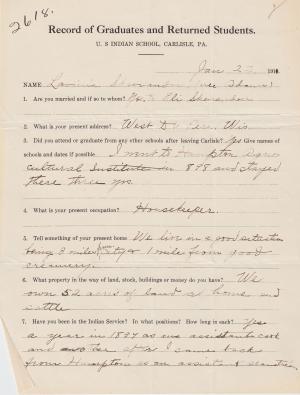 2618.
Record of Graduates and Returned Students.
U. S INDIAN SCHOOL, CARLISLE, PA.
Jan 191
NAME
1. Are you married and if so to whom? Yes Eli
2. What is your present address? West De Pere, Wis.
3. Did you attend or graduate from any other schools after leaving Carlisle? Yes Give names of
schools and dates if possible I went to Hampton
cultural Institute in 898 and stayed
there three yrs.
4. What is your present occupation? Housekeeper.
5. Tell something of your present home We live on a good
3 miles from city & 1 mile from good
creamery.
6. What property in the way of land, stock, buildings or money do you have? We
own 52 acres of land at home and
cattle
7. Have you been in the Indian Service? In what positions? How long in each? Yes
a year in 1897 as an assistant cook
and another after I came back
from Hampton as an assistant